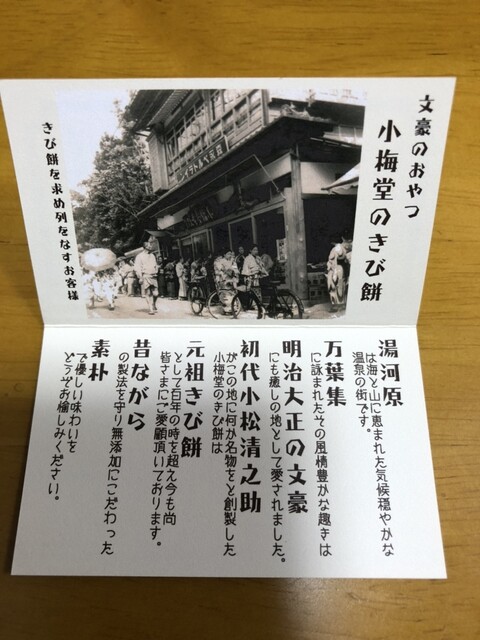 文豪のおやつ
小梅堂のきび餅
きび餅を求め列をなすお客様
湯河原
は海と山に恵まれた気候穏やかな
温泉の街です。
万葉集
に詠まれたその風情豊かな趣きは
明治大正の文豪
にも癒しの地として愛されました。
初代小松清之助
がこの地に何か名物をと創製した
小梅堂のきび餅は
元祖きび餅
として百年の時を超え今も尚
皆さまにご愛顧頂いております。
昔ながら
の製法を守り無添加にこだわった
素朴
で優しい味わいを
どうぞお愉しみください。